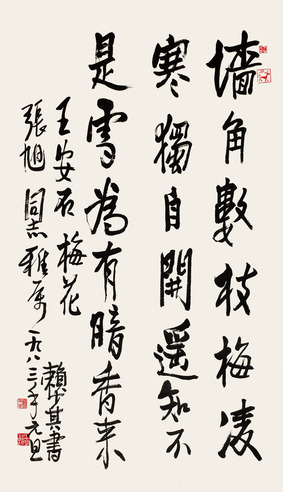 墻角數枝梅凌
寒獨自開遥知不
是雪為有暗香来
王安石梅花
張旭同志雅属
賴少其書
一九八三年元旦